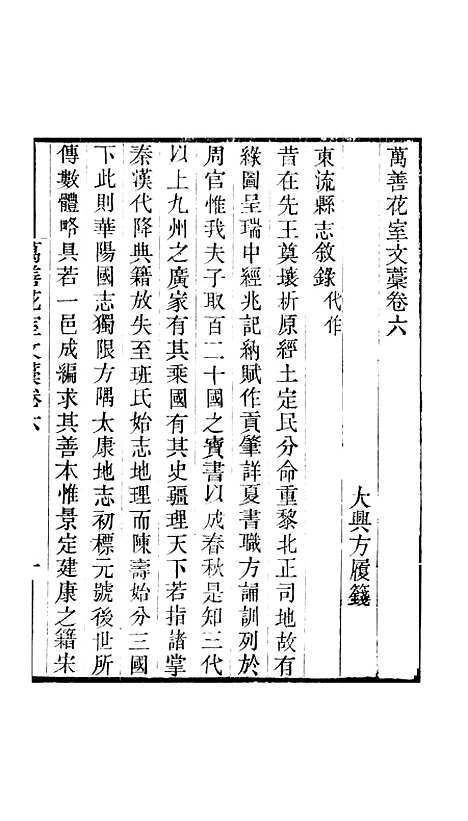 萬善花室文藳卷六
大興方履籛
東流縣志敘錄代作
昔在先王奠壤析原經土定民分命重黎北正司地故有
綠圖呈瑞中經兆記納賦作貢肇詳夏書職方誦訓列於
周官惟我夫子取百二十國之寶書以成春秋是知三代
以上九州之廣家有其乘國有其史疆理天下若指諸掌
秦漢代降典籍放失至班氏始志地理而陳壽始分三國
下此則華陽國志獨限方隅太康地志初標元號後世所
傳數體略具若一邑成編求其善本惟景定建康之籍宋
萬善花室文藳卷六
一